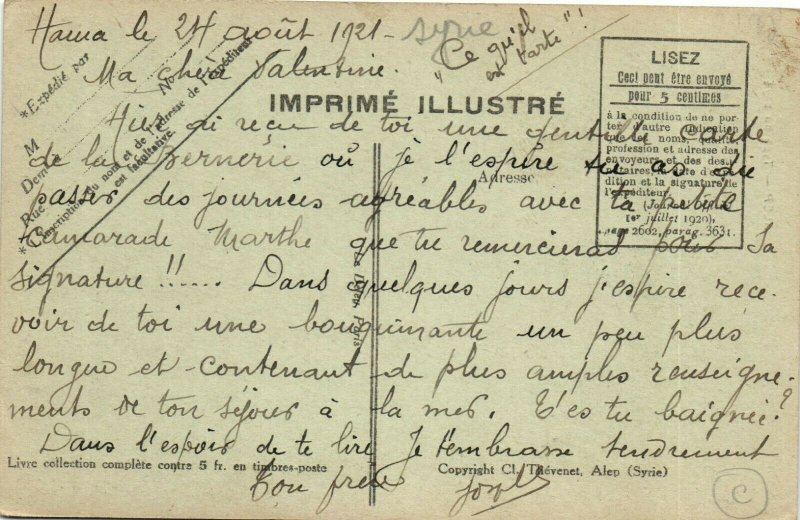 Hama le 24 août 1921 - Syrie
"Ce qu'il est tarte"!
Ma chère Valentine.
*Expédié par
M
Dem
Rue
No
IMPRIMÉ ILLUSTRÉ
Adresse
LISEZ
Ceci peut être envoyé
pour 5 centimes
à la condition de ne por-
ter d'autre indication
profession et adresse des
envoyeurs et des des-
dition et la signature de
l'expéditeur.
1er juillet 1920),
page 2602, parag. 3631.
Hier j'ai reçu de toi une gentille carte
de la Bernerie où je l'espère tu as dû
passer des journées agréables avec ta petite
camarade Marthe que tu remercieras pour sa
signature !!.... Dans quelques jours j'espère rece-
voir de toi une bouquinante un peu plus
longue et contenant de plus amples renseigne-
ments de ton séjour à la mer. T'es tu baignée?
Dans l'espoir de te lire Je t'embrasse tendrement
Livre collection complète contre 5 fr. en timbres-poste
Copyright Cl. Thévenet, Alep (Syrie)
Ton frère
C